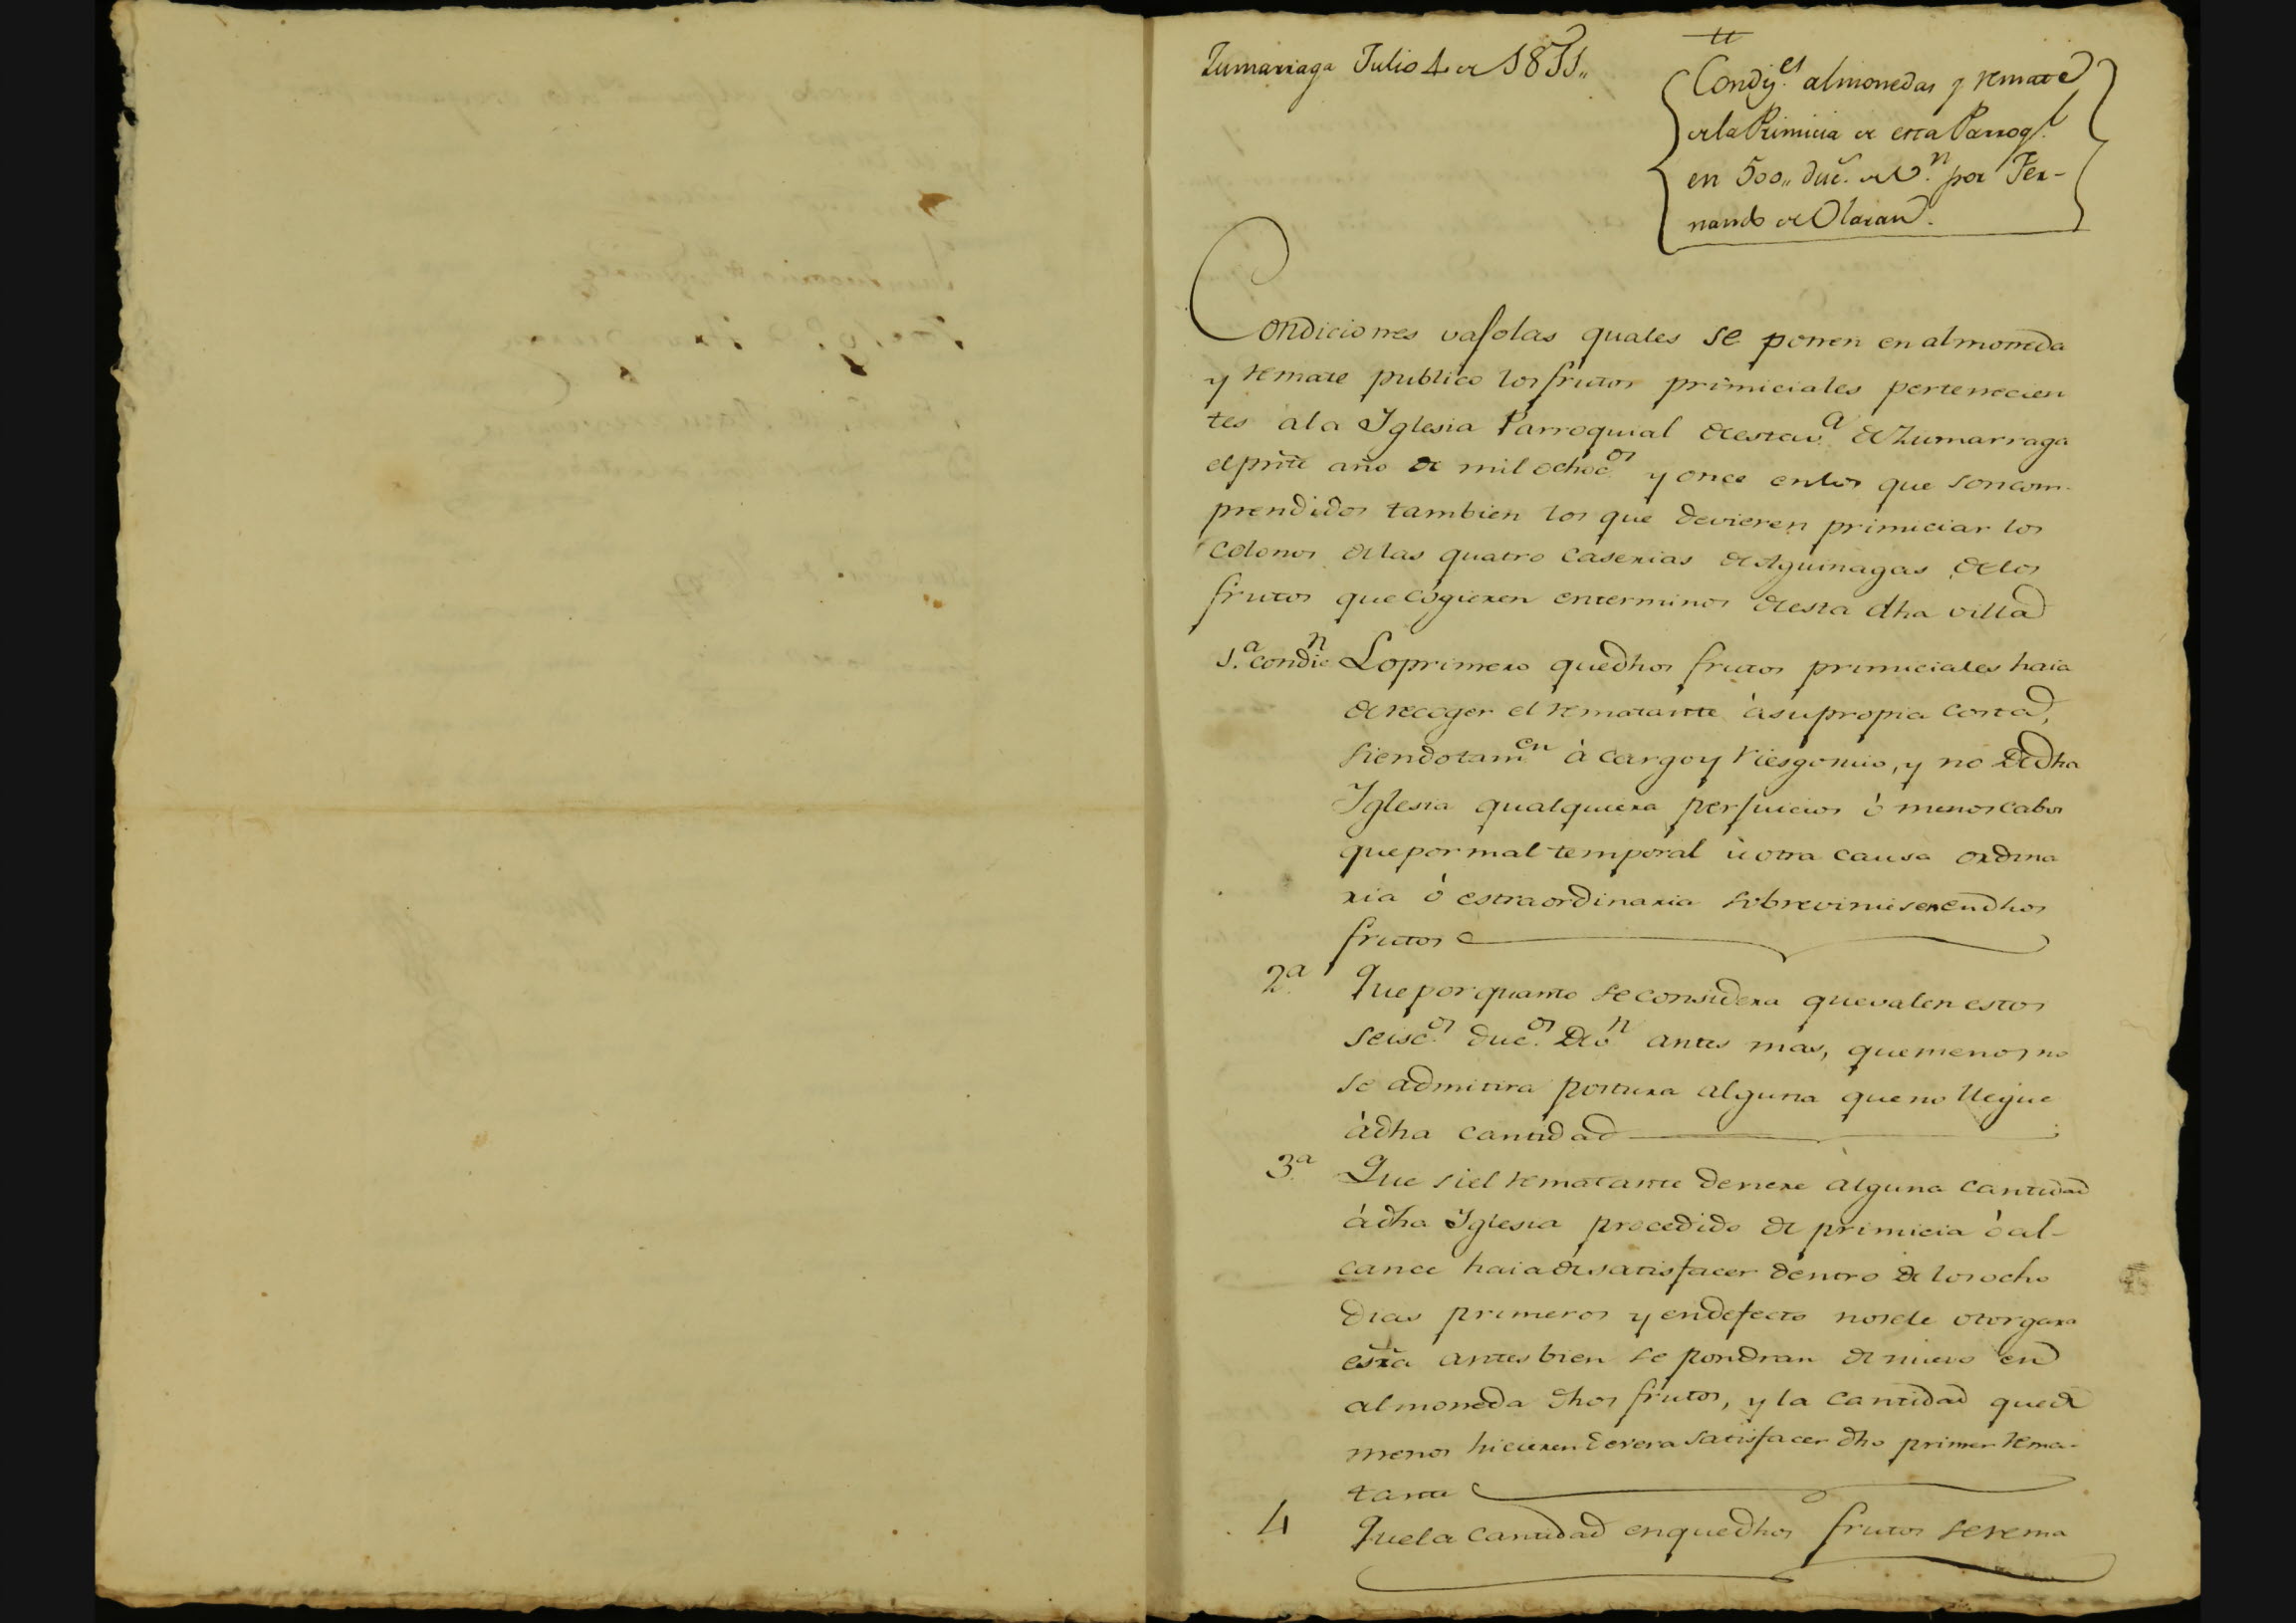 Zumarraga Julio 4 de 1811,,
tt
Condiz.es almonedas y remate
de la Primicia de esta Parroql.
en 500,, duc.s de V.n por Fer-
nando de Olaran.
Condiciones vaso las quales se ponen en almoneda
y remate publico los frutos primiciales pertenecien
tes ala Iglesia Parroquial de esta v.a de Zumarraga
el prñte año de mil ochoc.os y once en los que son com-
prendidos tambien los que devieren primiciar los
colonos de las quatro caserias de Aguinagas, de los
frutos que cogieren en terminos de esta dha villa
1.a condic.n Lo primero que dhos frutos primiciales haia
de recoger el rematante à su propia costa,
siendo tam.en à cargo y riesgo suio, y no de dha
Iglesia qualquiera perjuicios ò menoscabos
que por mal temporal ù otra causa ordina
ria ò estraordinaria sobreviniesen en dhos
frutos
2.a Que por quanto se considera que valen estos
seisc.os duc.os de v.n antes mas, que menos no
se admitira postura alguna que no llegue
à dha cantidad
3.a Que si el rematante deviere alguna cantidad
à dha Iglesia procedido de primicia ò al-
cance haia de satisfacer dentro de los ocho
dias primeros y en defecto no se le otorgara
esñra antes bien se pondran de nuevo en
almoneda dhos frutos, y la cantidad que de
menos hicieren devera satisfacer dho primer rema-
tante
4 Que la cantidad en que dhos frutos se rema